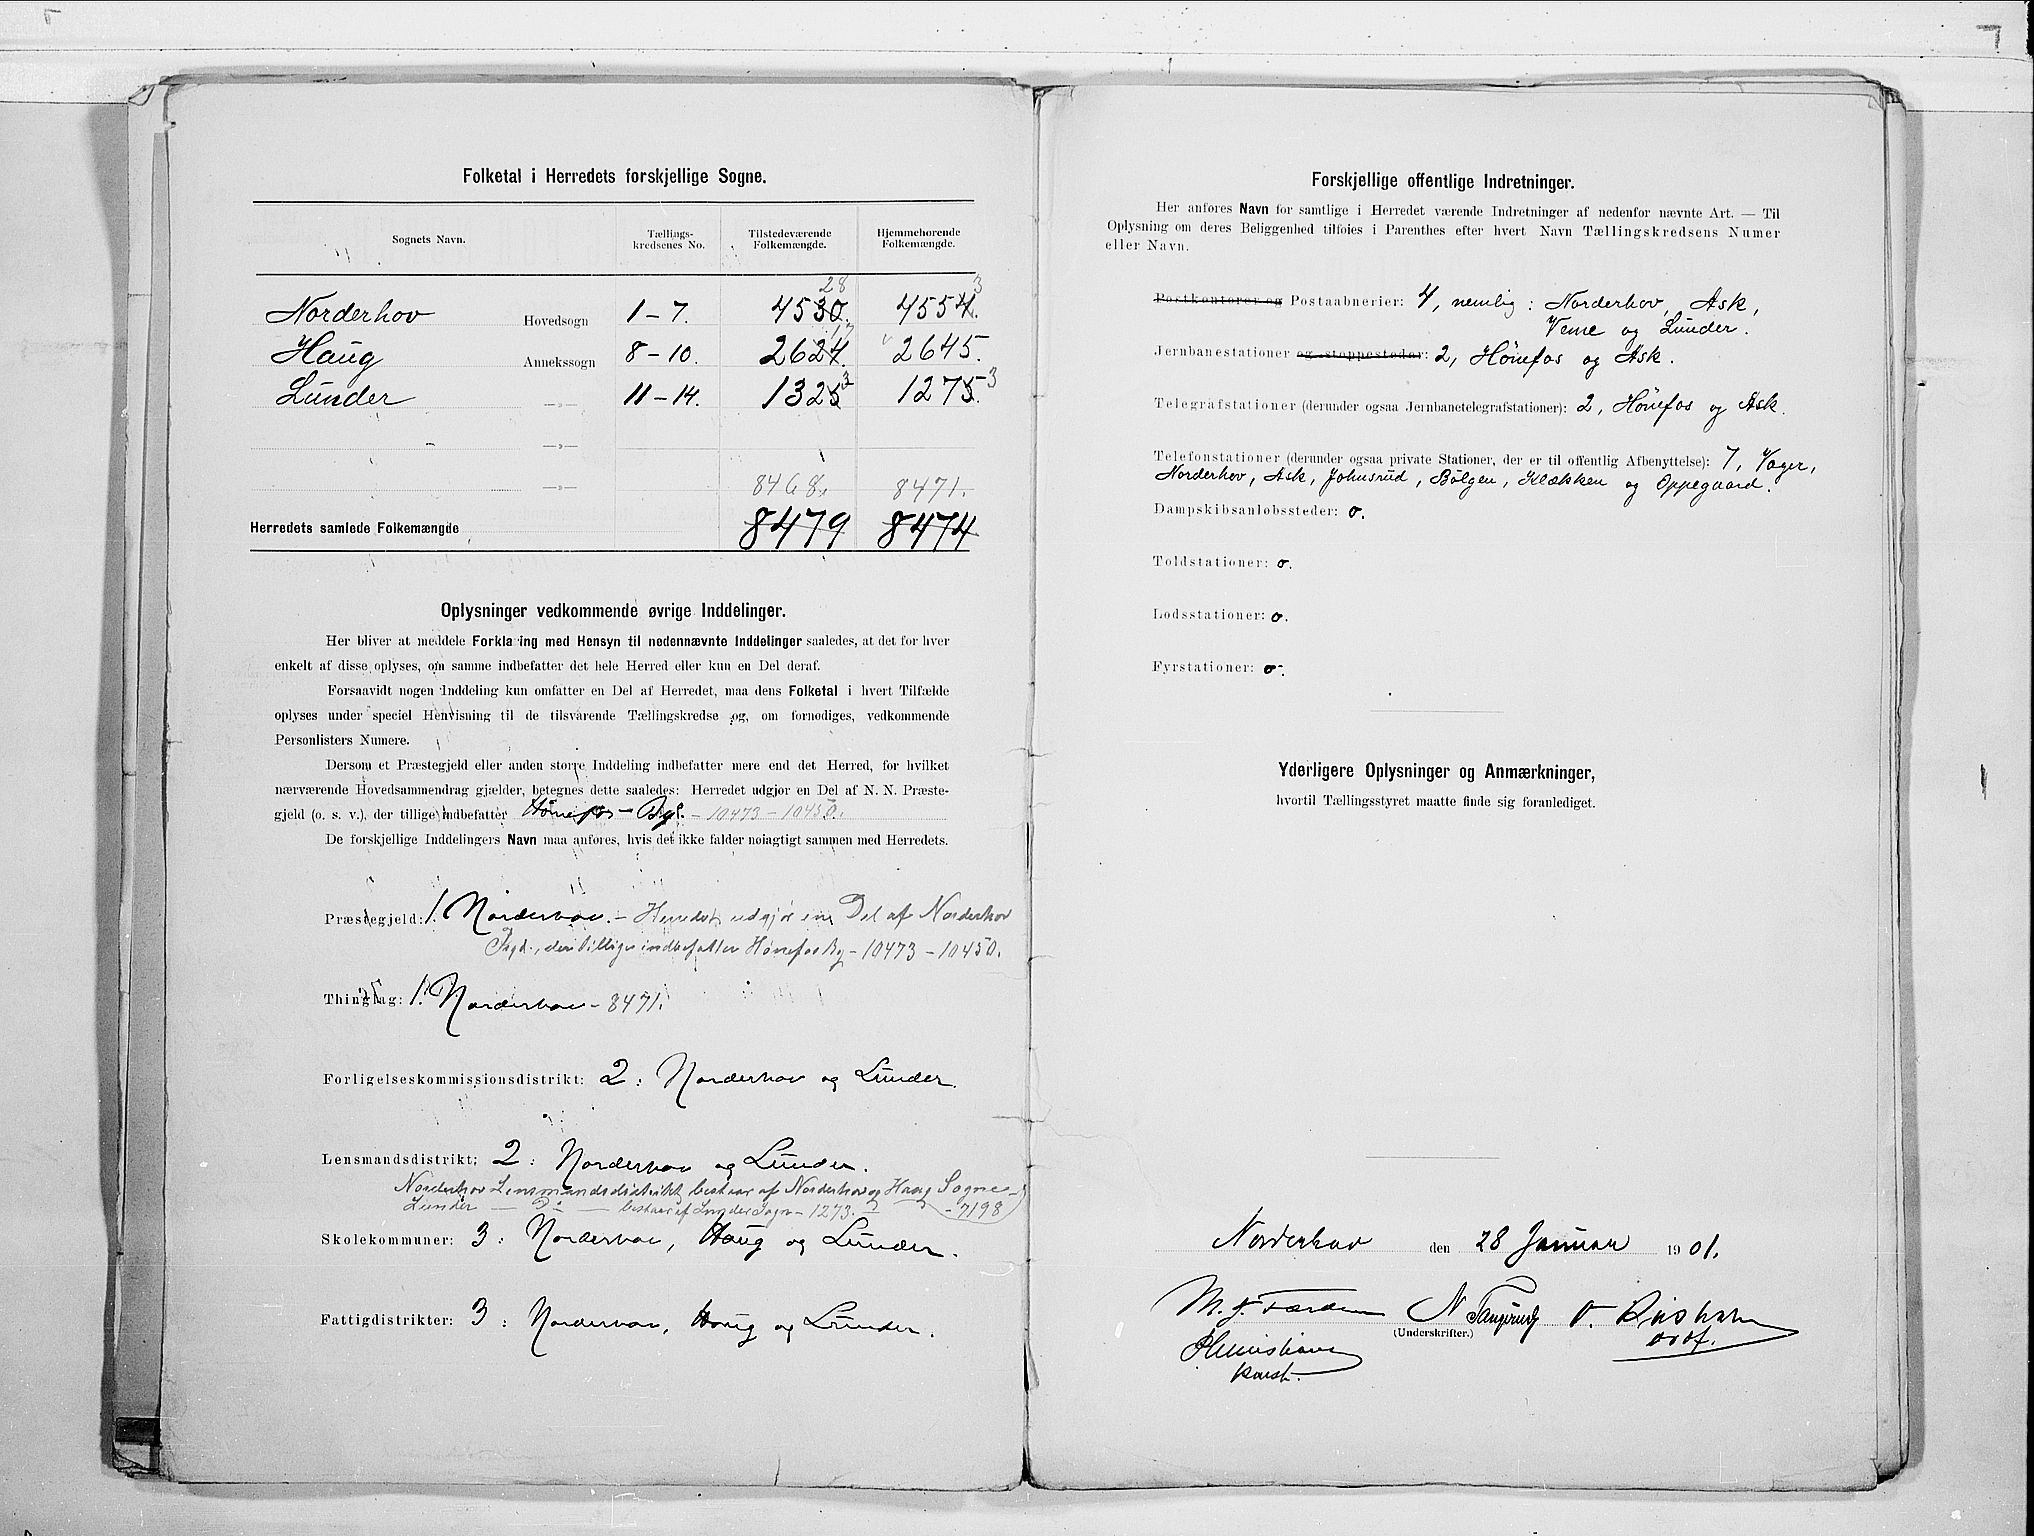 Folketal i Herredets forskjellige Sogne.
Sognets Navn. Tællings-kredsenes No. Tilstedeværende Folkemængde. Hjemmehørende Folkemængde.
28 3
Norderhov Hovedsogn 1 - 7. 4530. 4554.
17
Haug Annekssogn 8 - 10. 2624. 2645.
3 3
Lunder —„— 11 - 14. 1325 1275.
—„—
—„— 8468. 8471.
Herredets samlede Folkemængde 8479 8474
Oplysninger vedkommende øvrige Inddelinger.
Her bliver at meddele Forklaring med Hensyn til nedennævnte Inddelinger saaledes, at det for hver
enkelt af disse oplyses, om samme indbefatter det hele Herred eller kun en Del deraf.
Forsaavidt nogen Inddeling kun omfatter en Del af Herredet, maa dens Folketal i hvert Tilfælde
oplyses under speciel Henvisning til de tilsvarende Tællingskredse og, om fornødiges, vedkommende
Personlisters Numere.
Dersom et Præstegjeld eller anden større Inddeling indbefatter mere end det Herred, for hvilket
nærværende Hovedsammendrag gjælder, betegnes dette saaledes: Herredet udgjør en Del af N. N. Præste-
gjeld (o. s. v.), der tillige indbefatter Hønefos - By. - 10473 - 10450.
De forskjellige Inddelingers Navn maa anføres, hvis det ikke falder nøiagtigt sammen med Herredets.
Præstegjeld: 1. Norderhov. - Herredet udgjør en Del af Norderhov
Pgd., der tillige indbefatter Hønefos By - 10473 - 10450.
Thinglag: 1. Norderhov - 8471.
Forligelseskommissionsdistrikt: 2: Norderhov og Lunder.
Lensmandsdistrikt: 2: Norderhov og Lunder.
Norderhov Lensmandsdistrikt bestaar af Norderhov og Haug Sogne -
Lunder — Do — bestaar af Lunder Sogn - 1273. - 7198
Skolekommuner: 3: Norderhov, Haug og Lunder.
Fattigdistrikter: 3: Norderhov, Haug og Lunder.
Forskjellige offentlige Indretninger.
Her anføres Navn for samtlige i Herredet værende Indretninger af nedenfor nævnte Art. — Til
Oplysning om deres Beliggenhed tilføies i Parenthes efter hvert Navn Tællingskredsens Numer
eller Navn.
Postkontorer og Postaabnerier: 4, nemlig: Norderhov, Ask,
Veme og Lunder.
Jernbanestationer og stoppesteder: 2, Hønefos og Ask.
Telegrafstationer (derunder ogsaa Jernbanetelegrafstationer): 2, Hønefos og Ask.
Telefonstationer (derunder ogsaa private Stationer, der er til offentlig Afbenyttelse): 7, Vager,
Norderhov, Ask, Johnsrud, Bølgen, Klækken og Oppegaard.
Dampskibsanløbssteder: o.
Toldstationer: o.
Lodsstationer: o.
Fyrstationer: o.
Yderligere Oplysninger og Anmærkninger,
hvortil Tællingsstyret maatte finde sig foranlediget.
Norderhov den 28 Januar 1901.
M. J. Færden N
(Underskrifter.)